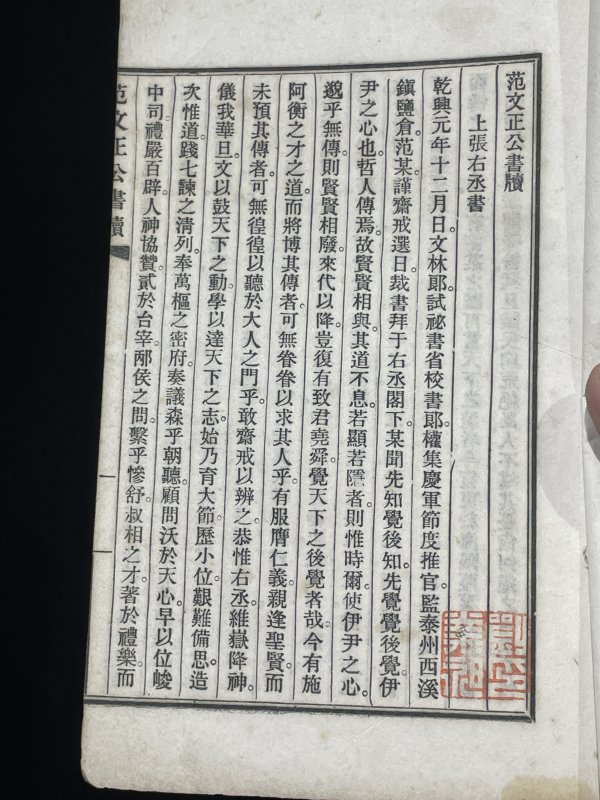 范文正公書牘
上張右丞書
乾興元年十二月日。文林郞試祕書省校書郞。權集慶軍節度推官監泰州西溪
鎮鹽倉。范某。謹齋戒選日。裁書拜于右丞閣下。某聞先知覺後知。先覺覺後覺。伊
尹之心也。哲人傳焉。故賢賢相與。其道不息。若顯若隱者。則惟時爾。使伊尹之心。
邈乎無傳。則賢賢相廢。來代以降。豈復有致君堯舜。覺天下之後覺者哉。今有施
阿衡之才之道。而將博其傳者。可無眷眷以求其人乎。有服膺仁義。親逢聖賢。而
未預其傳者。可無徨徨以聽於大人之門乎。敢齋戒以辨之。恭惟右丞。維嶽降神。
儀我華旦。文以鼓天下之動。學以達天下之志。始乃育大節。歷小位。艱難備思。造
次惟道。踐七諫之清列。奉萬樞之密府。奏議森乎朝聽。顧問沃於天心。早以位峻
中司。禮嚴百辟。人神協贊。貳於台宰。邴侯之問。繫乎慘舒。叔相之才。著於禮樂。而
范文正公書牘